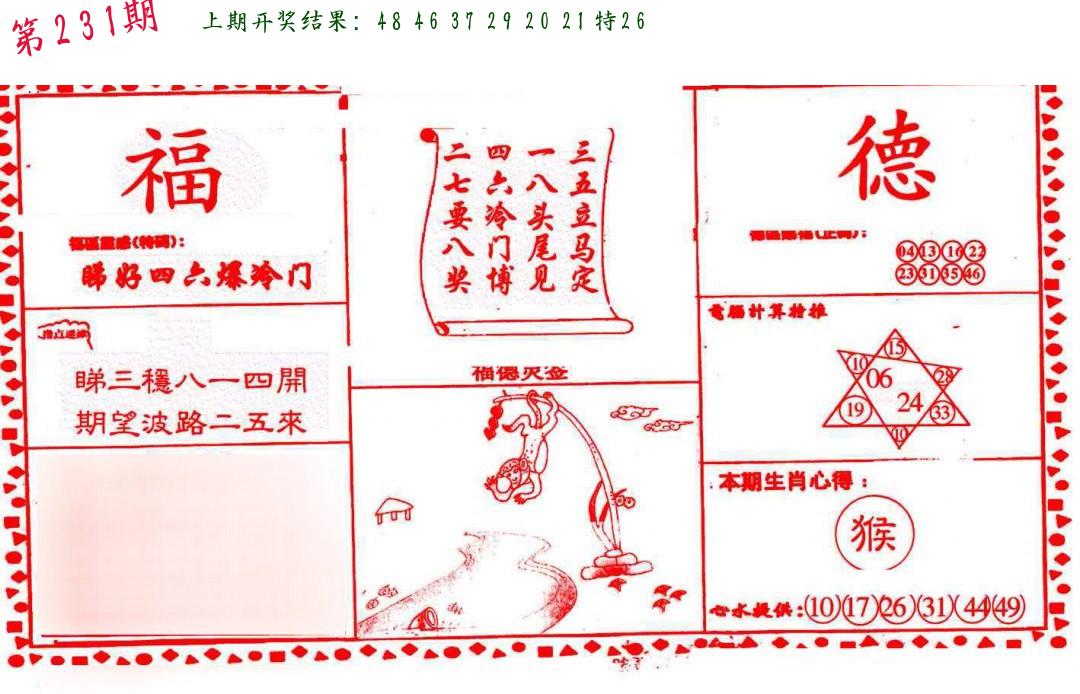 第231期
上期开奖结果：48 46 37 29 20 21特26
福
福區靈感(特碼)：
睇好四六爆冷门
睇三穩八一四開
期望波路二五來
三五立马定
一八头尾见
四六冷门博
二七要八奖
福德灵签
德
04 13 16 22
23 31 35 46
電腦計算推
15
10 28
06
24
19 33
10
本期生肖心得：
猴
心水提供：(10)(17)(26)(31)(44)(49)